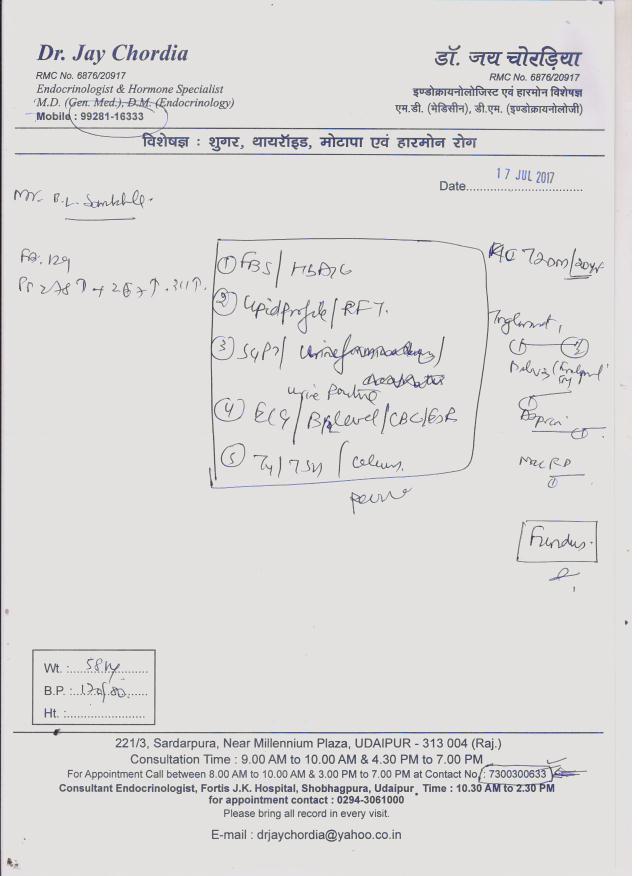 Dr. Jay Chordia
RMC No. 6876/20917
Endocrinologist & Hormone Specialist
M.D. (Gen. Med.), D.M. (Endocrinology)
Mobile : 99281-16333
डॉ. जय चोरड़िया
RMC No. 6876/20917
इण्डोक्रायनोलोजिस्ट एवं हारमोन विशेषज्ञ
एम.डी. (मेडिसीन), डी.एम. (इण्डोक्रायनोलोजी)
विशेषज्ञ : शुगर, थायरॉइड, मोटापा एवं हारमोन रोग
Date 17 JUL 2017
Mr. B.L.
129
① FBS / HbA1c
② Lipid profile / RFT.
③ SGPT /
urine routine
④ ECG / B12 level / CBC / ESR
⑤ T4 / TSH /
T2DM / 20yr
Fundus.
Wt. : 58 kg
B.P. : 120/80
Ht. :
221/3, Sardarpura, Near Millennium Plaza, UDAIPUR - 313 004 (Raj.)
Consultation Time : 9.00 AM to 10.00 AM & 4.30 PM to 7.00 PM
For Appointment Call between 8.00 AM to 10.00 AM & 3.00 PM to 7.00 PM at Contact No. : 7300300633
Consultant Endocrinologist, Fortis J.K. Hospital, Shobhagpura, Udaipur, Time : 10.30 AM to 2.30 PM
for appointment contact : 0294-3061000
Please bring all record in every visit.
E-mail : drjaychordia@yahoo.co.in